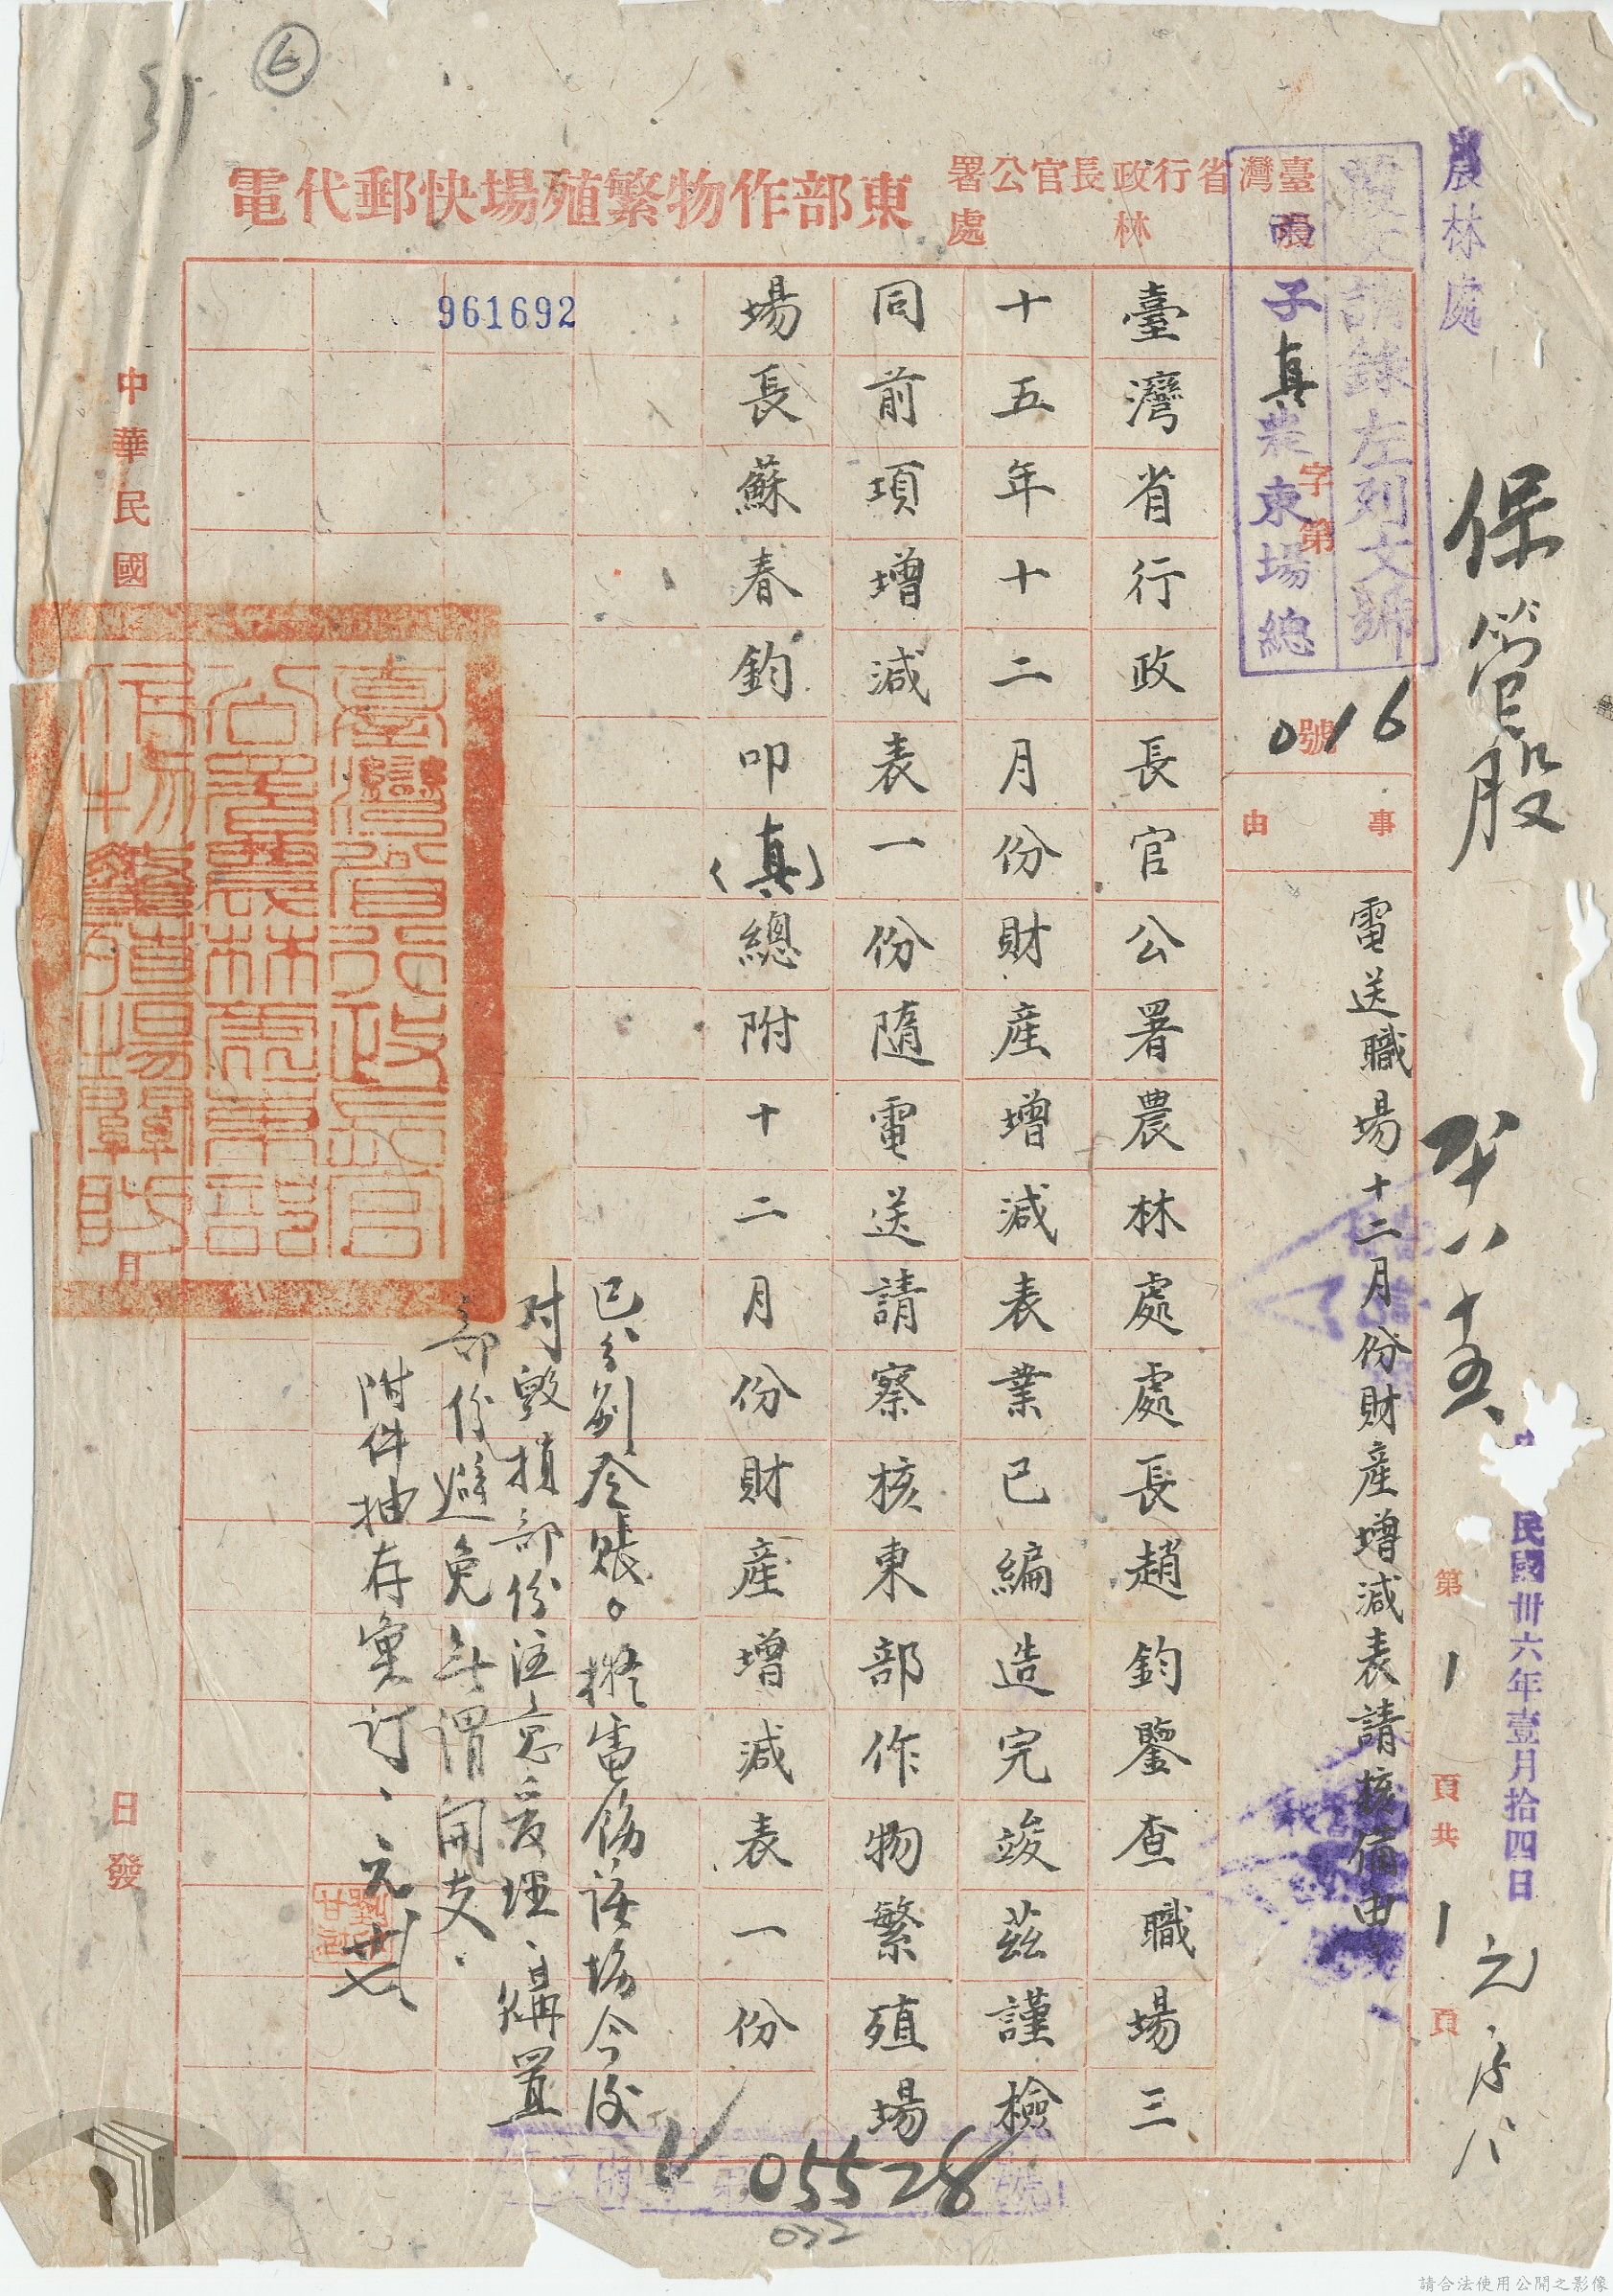 6
31
臺灣省行政長官公署
農林處
東部作物繁殖場快郵代電
農林處
複文請錄左列文號
子真農東場總
字第
016
號
保管股
民國卅六年壹月拾四日
第1頁共1頁
事由
電送職場十二月份財産增減表請核備由
臺灣省行政長官公署農林處處長趙鈞鑒查職場三
十五年十二月份財産增減表業已編造完竣茲謹檢
同前項增減表一份隨電送請察核東部作物繁殖場
場長蘇春鈞叩(真)總附十二月份財産增減表一份
已分別登賬。擬電飭該場今後
対毀損部份注意爰理、購置
部份避免無謂開支.
附件抽存彙訂、元廿七、
961692
臺灣省行政長官
公署農林處東部
作物繁殖場關防
中華民國
月
日發
05528
032
請合法使用公開之影像